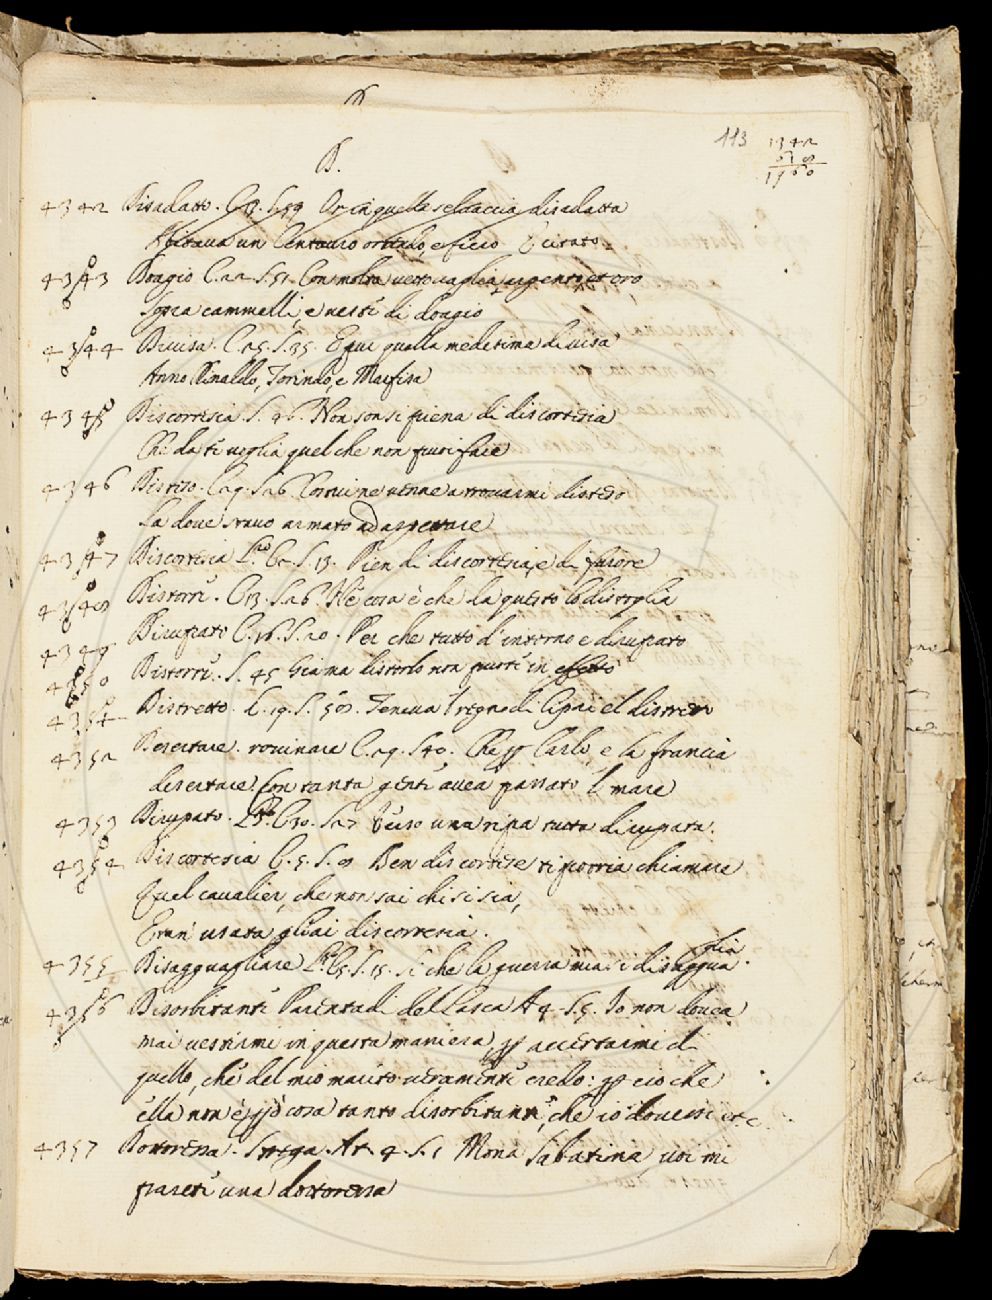 D
D.
113
1342
618
1960
4342 Disadatto. C. 13. S. 59 Or in quella selvaccia disadatta
Abitava un Centauro orrendo, e ficio È citato
4343 Doagio C. 22. S. 51. Con molta vettovaglia, argento, et oro
Sopra cammelli, e vesti di doagio
4344 Divisa. C. 25. S. 35. E qui quella medesima divisa
Anno Rinaldo, Torindo, e Marfisa
4345 Discortesia S. 46. Non son sì piena di discortesia
Che da ti voglia quel che non puoi fare
4346 Disteso. C. 29. S. 26 Correndo venne a trovarmi disteso
La dove stavo armato ad aspettare
4347 Discortesia C. S. 13. Pien di discortesia, e di furore
4348 Distorre. C. 13. S. 26. Nè cosa è che da questo lo distoglia
4349 Dirupato C. 16. S. 20. Per che tutto d'intorno e dirupato
4350 Distorre. S. 45 Giamai distorlo non puote in effetto
4351 Distretto. C. 19. S. 58. Teneva l regno di Cipri el distretto
4352 Desertare. rovinare C. 29. S. 40. Che p Carlo, e la francia
disertare Con tanta gente avea passato l mare
4353 Dirupato. C. 30. S. 27 Verso una ripa tutta dirupata.
4354 Discortesia C. 5. S. 8 Ben discortese ti potria chiamare
Quel cavalier, che non sai chi si sia,
E tun' usata gliai discortesia.
4355 Disagguagliare C. 5. S. 15. Sì che la guerra mai si disaggua
glia.
4356 Disorbitante Parentadi del Lasca A 4. S. 5. Io non dovea
mai vestirmi in questa maniera, p accertarmi di
quello, che del mio marito veramente credo: p ciò che
ella non è però cosa tanto disorbitante, che io dovessi etc.
4357 Dottoressa. Strega. At. 4. S. 1 Mona Sabatina voi mi
parete una dottoressa